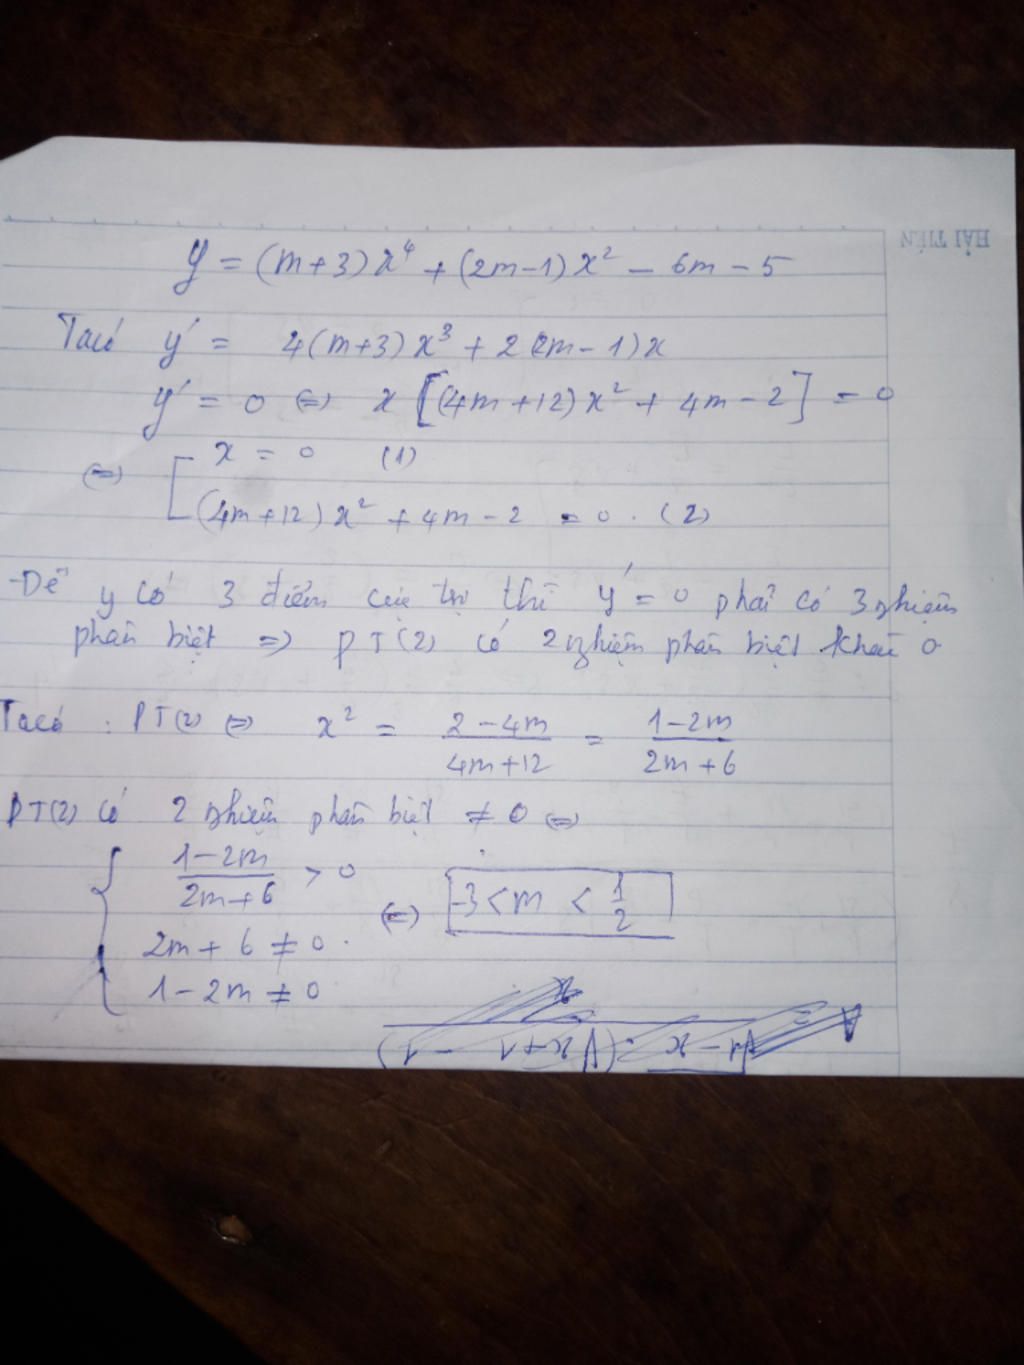 HẢI TIẾN
y = (m+3)x⁴ + (2m-1)x² - 6m - 5
Ta có y' = 4(m+3)x³ + 2(2m-1)x
y' = 0 ⇔ x[(4m+12)x² + 4m - 2] = 0
⇔ [ x = 0 (1)
(4m+12)x² + 4m - 2 = 0. (2)
-Để y có 3 điểm cực trị thì y' = 0 phải có 3 nghiệm
phân biệt => PT(2) có 2 nghiệm phân biệt khác 0
Ta có: PT(2) ⇔ x² = (2-4m)/(4m+12) = (1-2m)/(2m+6)
PT(2) có 2 nghiệm phân biệt ≠ 0 ⇔
{ (1-2m)/(2m+6) > 0
2m + 6 ≠ 0. ⇔ -3 < m < 1/2
1 - 2m ≠ 0